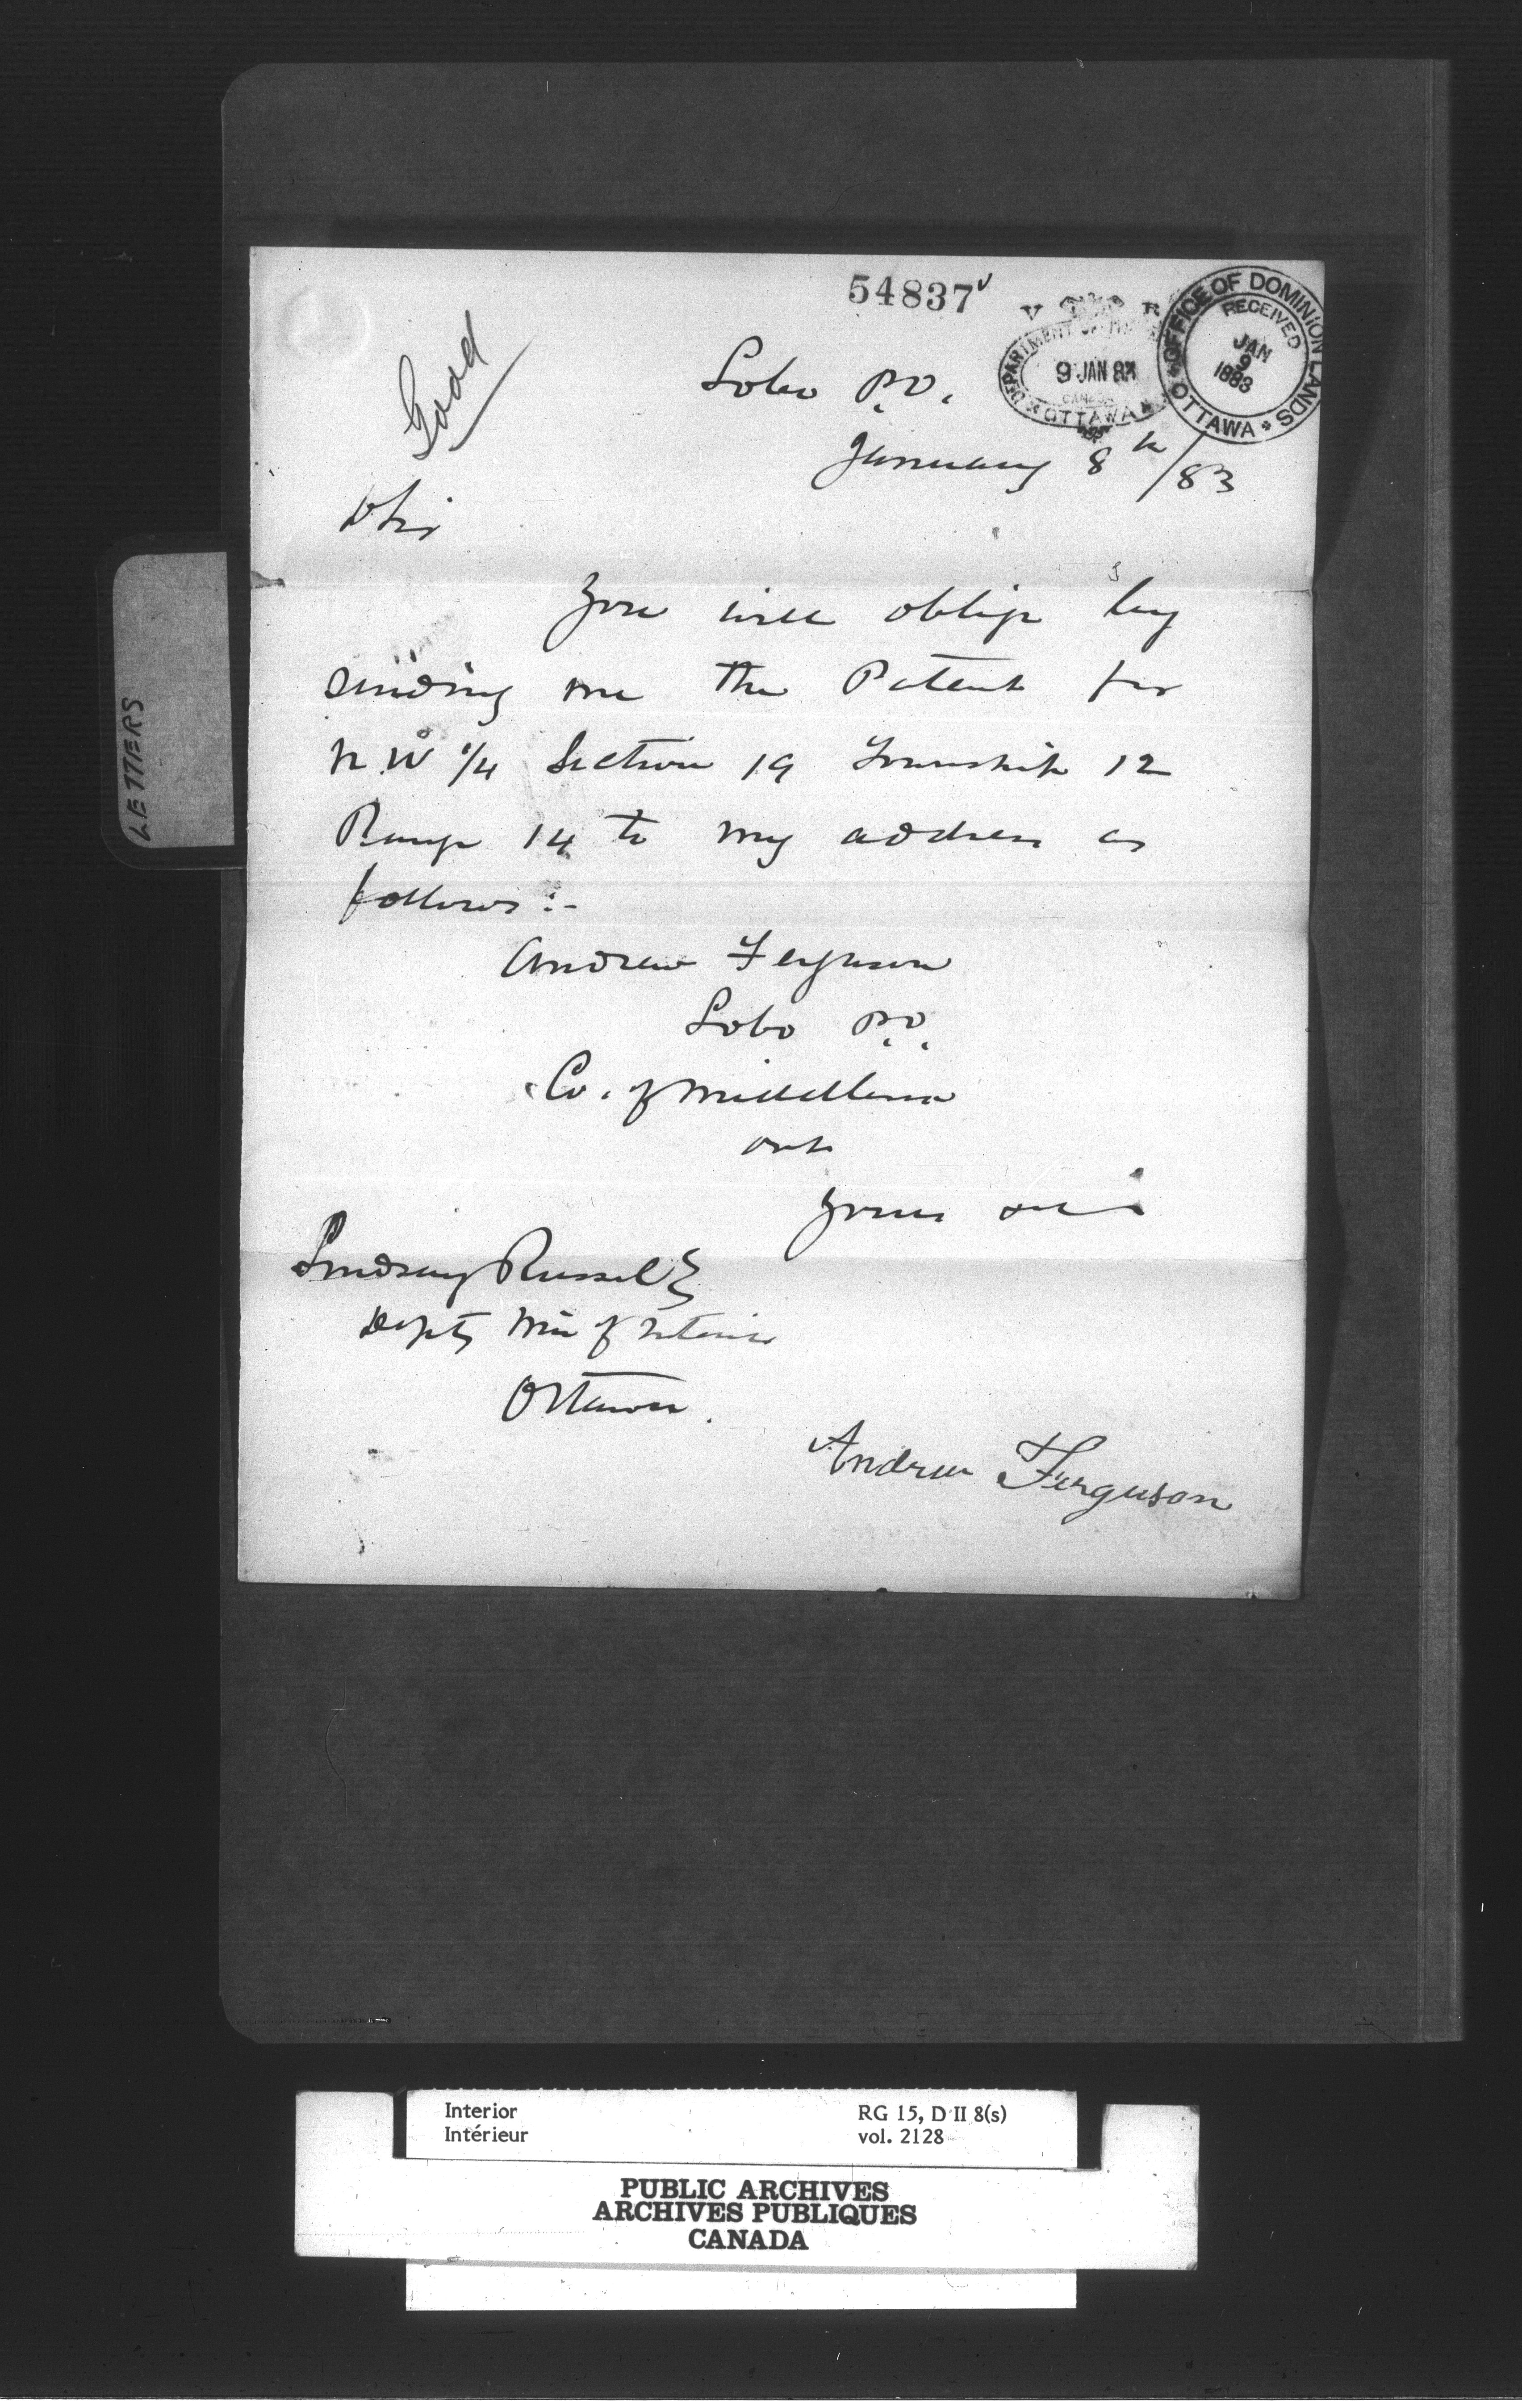 54837
V R
DEPARTMENT OF
9 JAN 83
CANADA
OTTAWA
OFFICE OF DOMINION LANDS
RECEIVED
JAN
9
1883
OTTAWA
Good
Lobo P.O.
January 8th/83
D Sir
You will oblige by
sending me the Patent for
N.W 1/4 Section 19 Township 12
Range 14 to my address as
follows:-
Andrew Ferguson
Lobo P.O.
Co. of Middlesex
Ont
Yours
Lindsay Russell
Depty Min of Interior
Ottawa.
Andrew Ferguson
LETTERS
Interior
Intérieur
RG 15, D II 8(s)
vol. 2128
PUBLIC ARCHIVES
ARCHIVES PUBLIQUES
CANADA